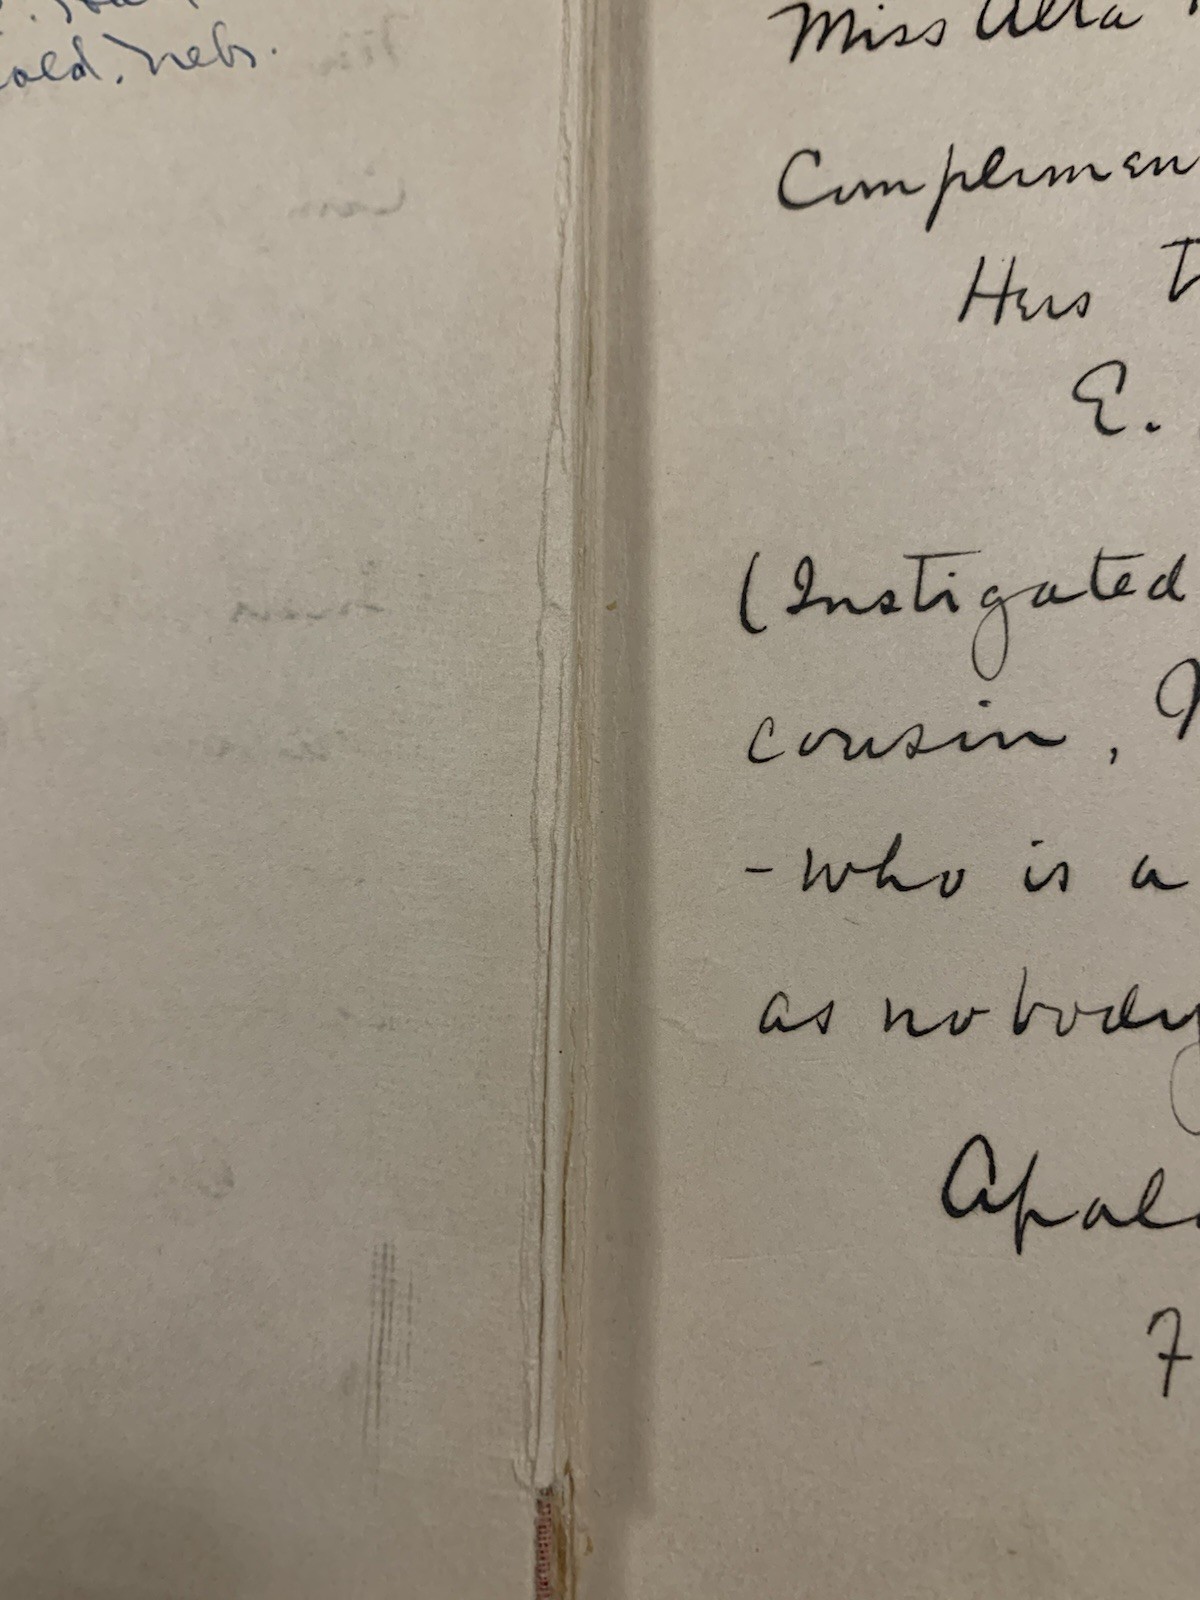 Nebr.
Miss Alta
Complimen
Hers
E.
(Instigated
cousin,
- who is a
as nobody
Apolo
7